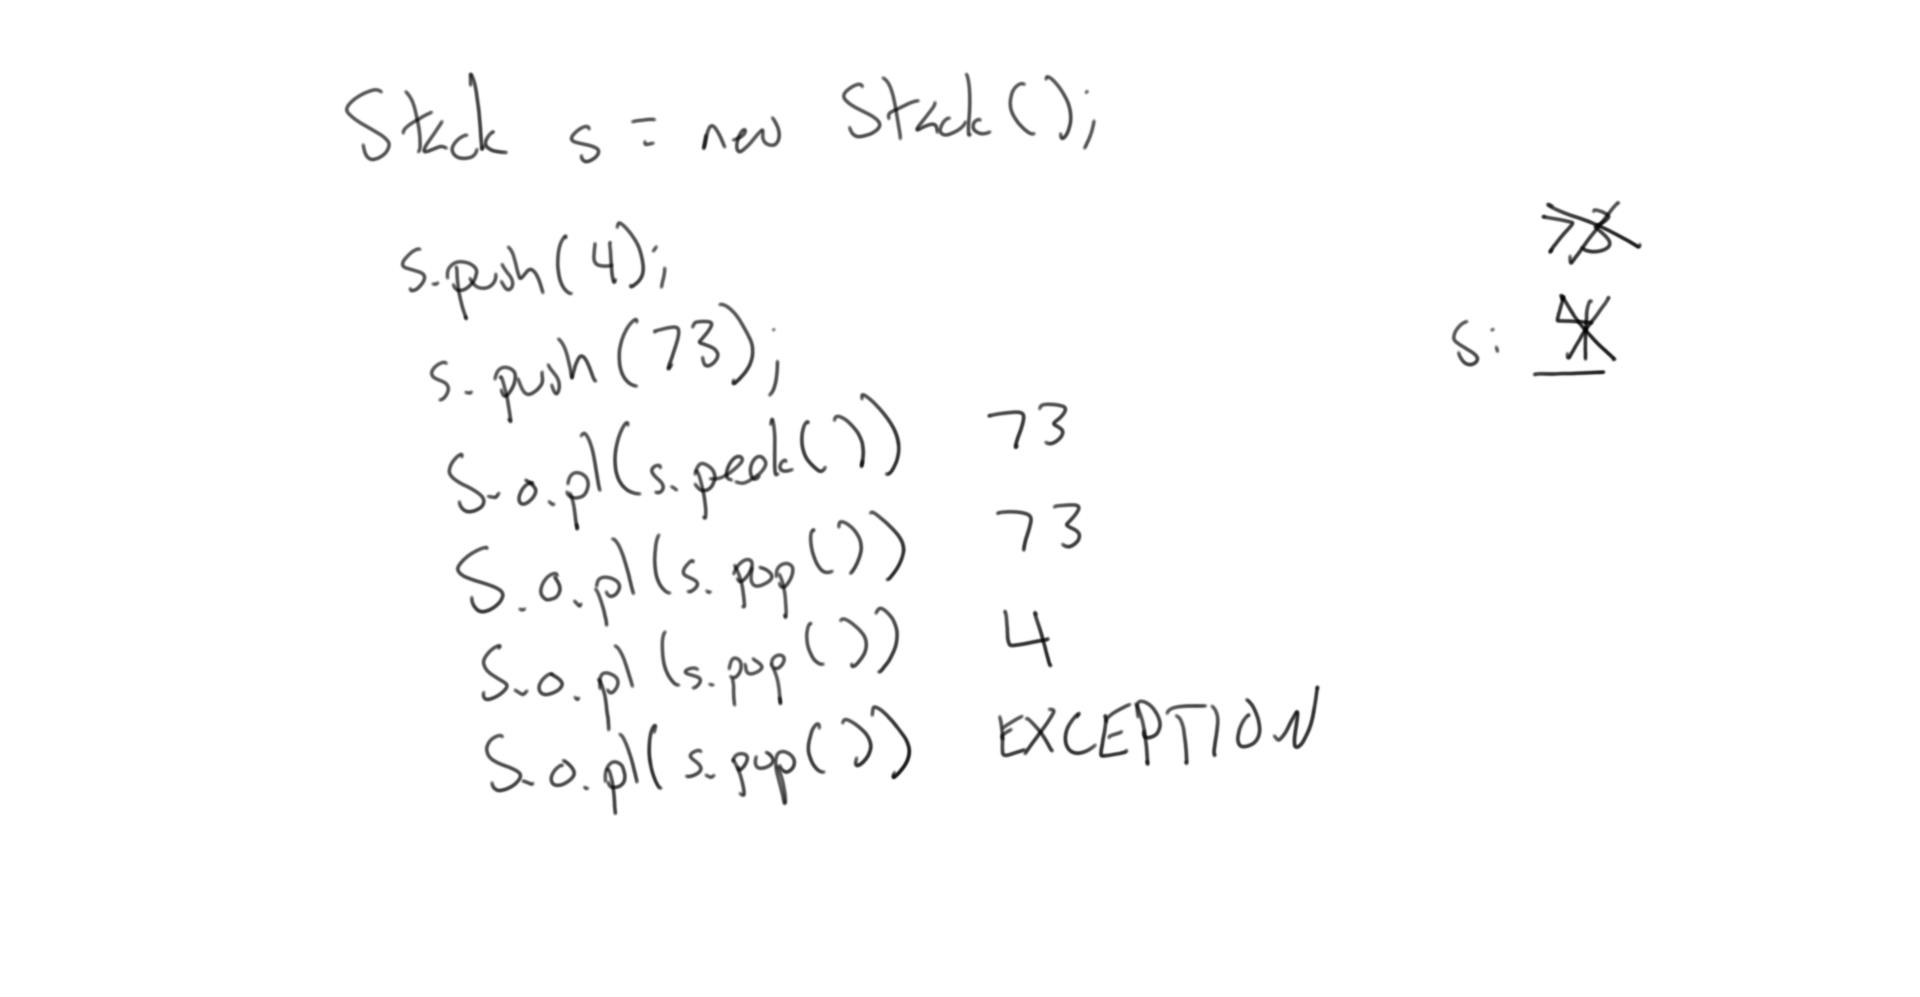 Stack s = new Stack();
s.push(4);
s.push(73);
S.o.pl(s.peek()) 73
S.o.pl(s.pop()) 73
S.o.pl(s.pop()) 4
S.o.pl(s.pop()) EXCEPTION
73
s: 4